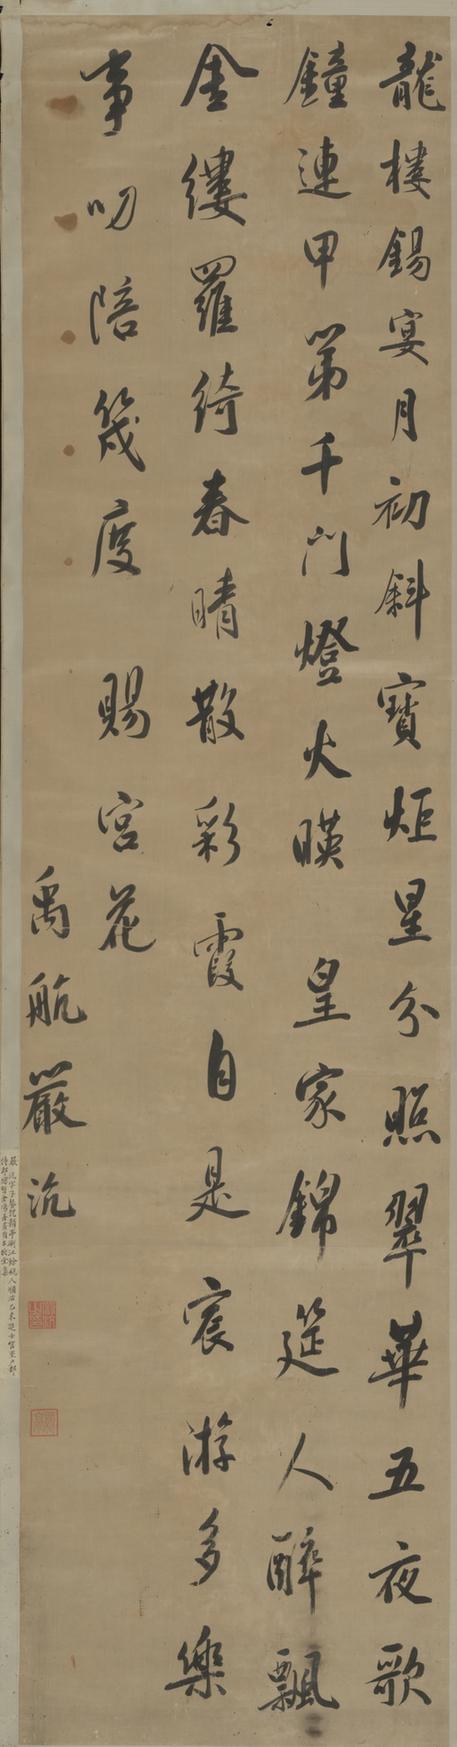 龍樓錫宴月初斜寶炬星分照翠華五夜歌
鐘連甲第千門燈火暎皇家錦筵人醉飄
金縷羅綺春晴散彩霞自是宸游多樂
事叨陪幾度賜宮花
禹航嚴沆